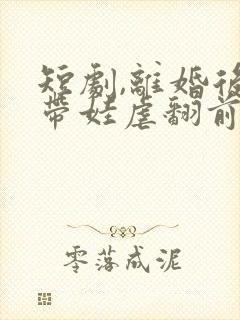 短劇,離婚後
帶娃虐翻前
零落成泥